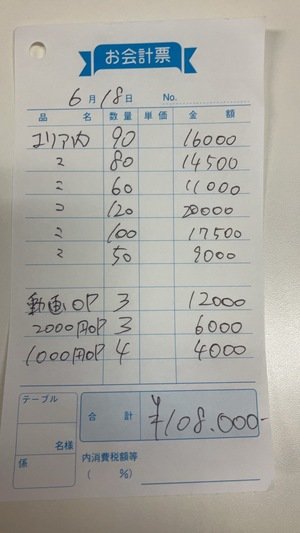 お会計票
6月18日 No.
品名 数量 単価 金額
エリア内 90 16000
〃 80 14500
〃 60 11000
〃 120 20000
〃 100 17500
〃 50 9000
動画OP 3 12000
2000円OP 3 6000
1000円OP 4 4000
テーブル
名様
係
合計 ¥108.000-
内消費税額等
( %)